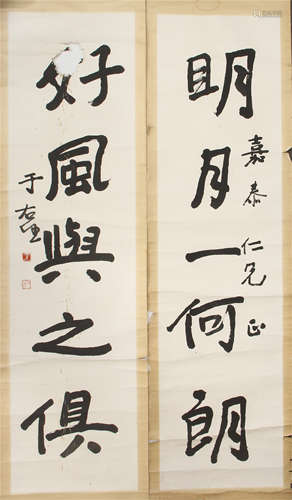 明月一何朗
嘉泰仁兄正
好風與之俱
于右任